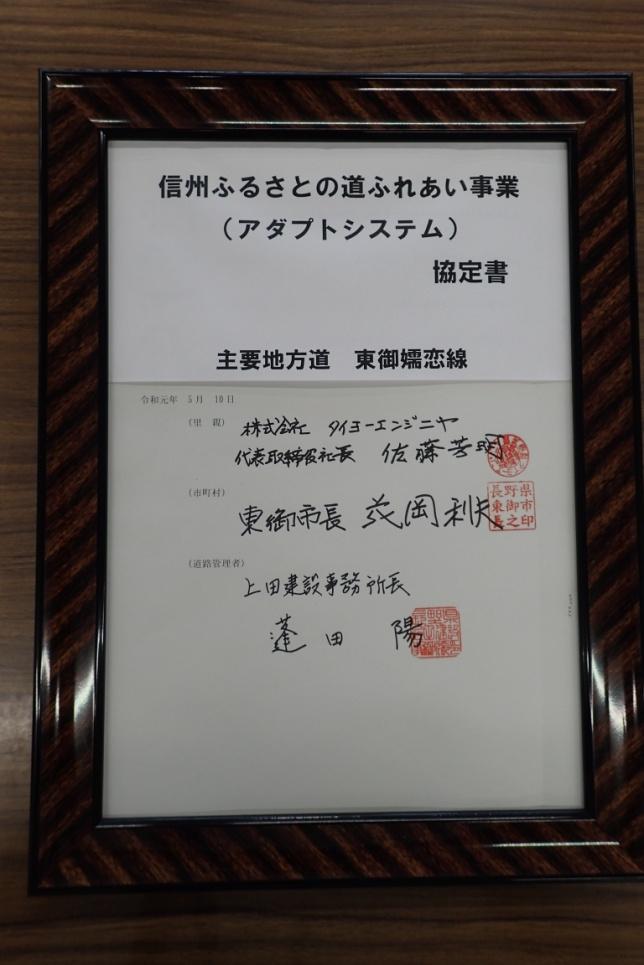 信州ふるさとの道ふれあい事業
（アダプトシステム）
協定書
主要地方道　東御嬬恋線
令和元年　5月　10日
（里　親）　株式会社　タイヨーエンジニヤ
代表取締役社長　佐藤芳明
（市町村）
東御市長　花岡利夫
長野県
東御市
長之印
（道路管理者）
上田建設事務所長
蓬田　陽